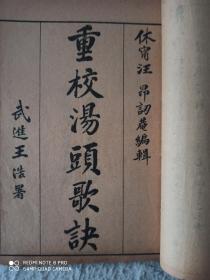 休甯汪昂訒菴編輯
重校湯頭歌訣
武進王浩署
REDMI NOTE 9
AI QUAD CAMERA